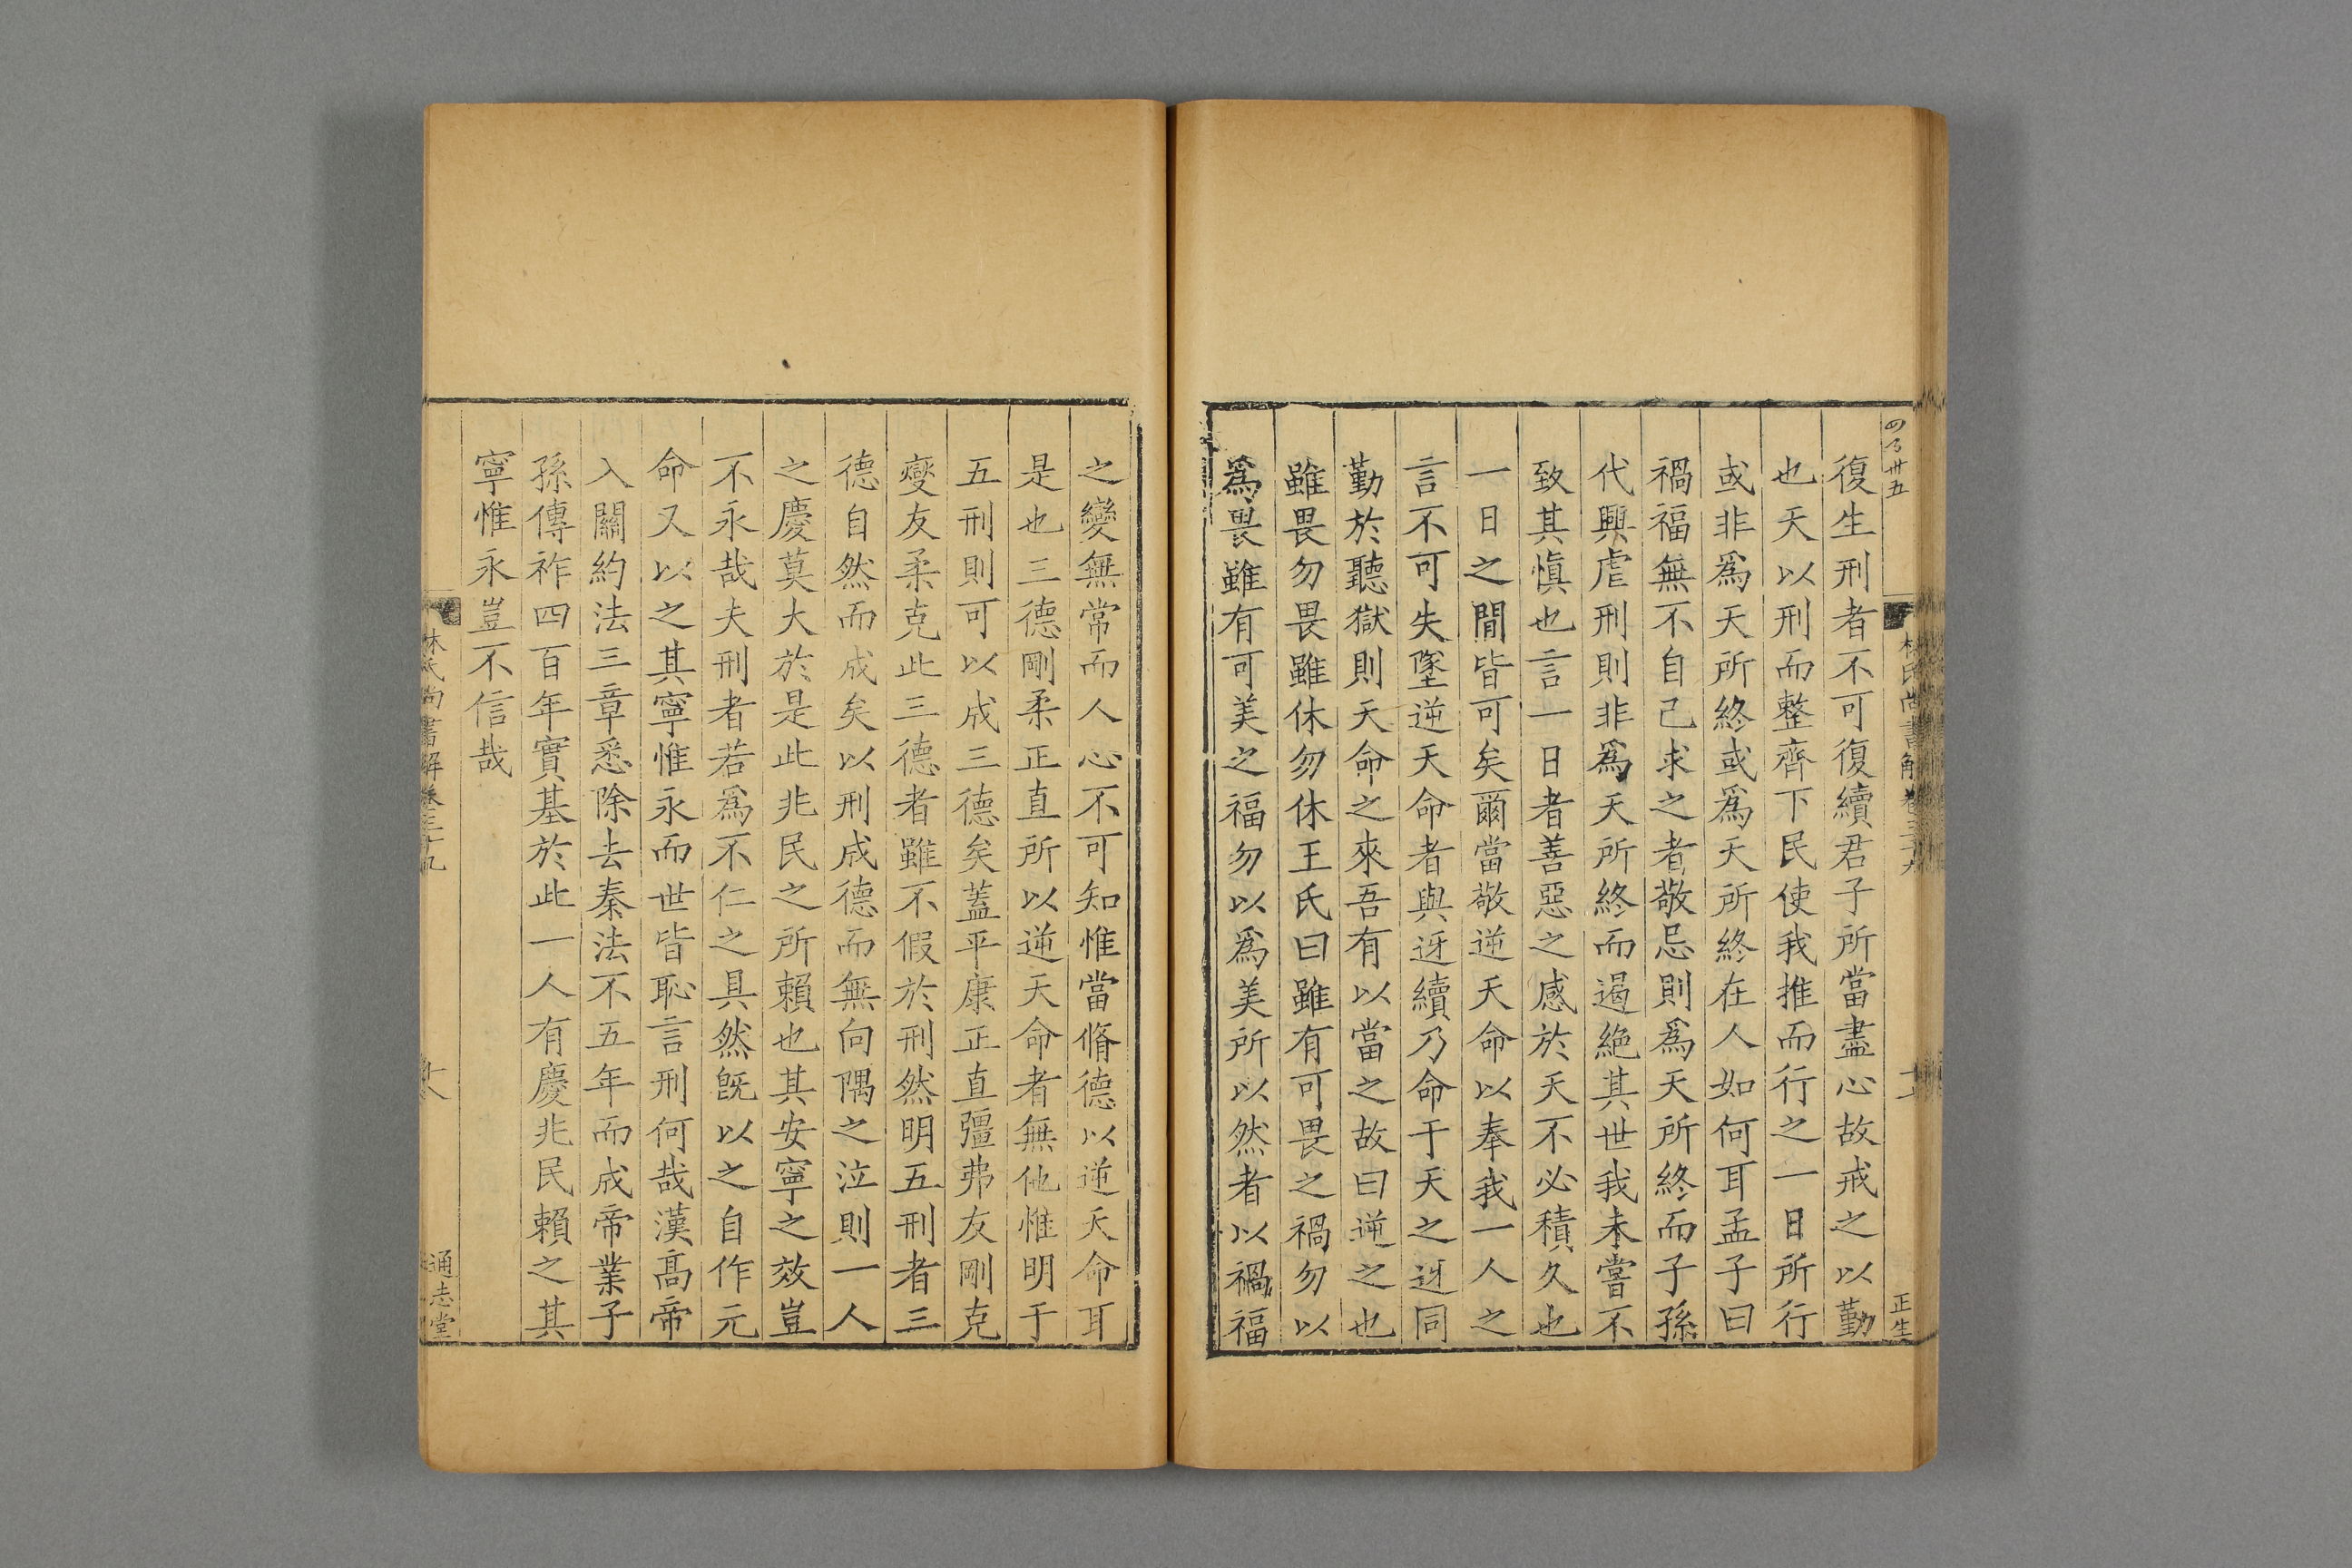 四百卅五
林氏尚書解卷三十九
正生
復生刑者不可復續君子所當盡心故戒之以勤
也天以刑而整齊下民使我推而行之一日所行
或非爲天所終或爲天所終在人如何耳孟子曰
禍福無不自己求之者敬忌則爲天所終而子孫
代興虐刑則非爲天所終而遏絶其世我未嘗不
致其愼也言一日者善惡之感於天不必積久也
一日之閒皆可矣爾當敬逆天命以奉我一人之
言不可失墜逆天命者與迓續乃命于天之迓同
勤於聽獄則天命之來吾有以當之故曰逆之也
雖畏勿畏雖休勿休王氏曰雖有可畏之禍勿以
爲畏雖有可美之福勿以爲美所以然者以禍福
之變無常而人心不可知惟當脩德以逆天命耳
是也三德剛柔正直所以逆天命者無他惟明于
五刑則可以成三德矣蓋平康正直彊弗友剛克
燮友柔克此三德者雖不假於刑然明五刑者三
德自然而成矣以刑成德而無向隅之泣則一人
之慶莫大於是此兆民之所賴也其安寧之效豈
不永哉夫刑者若爲不仁之具然旣以之自作元
命又以之其寧惟永而世皆恥言刑何哉漢高帝
入關約法三章悉除去秦法不五年而成帝業子
孫傳祚四百年實基於此一人有慶兆民賴之其
寧惟永豈不信哉
林氏尚書解卷三十九
通志堂